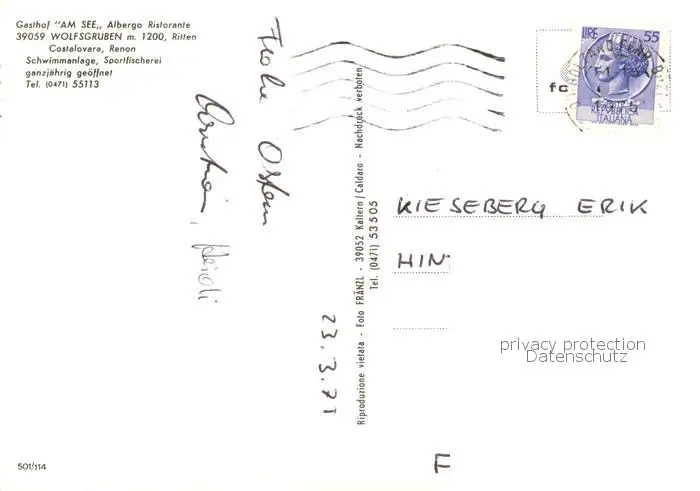 Gasthof "AM SEE„ Albergo Ristorante
39059 WOLFSGRUBEN m. 1200, Ritten
Costalovara, Renon
Schwimmanlage, Sportfischerei
ganzjährig geöffnet
Tel. (0471) 55113
Frohe Ostern
Christian, Heidi
23.3.71
Riproduzione vietata - Foto FRÄNZL - 39052 Kaltern / Caldaro - Nachdruck verboten
Tel. (0471) 53505
LIRE 55
REPUBBLICA
ITALIANA
KIESEBERG ERIK
HIN
privacy protection
Datenschutz
F
501/114